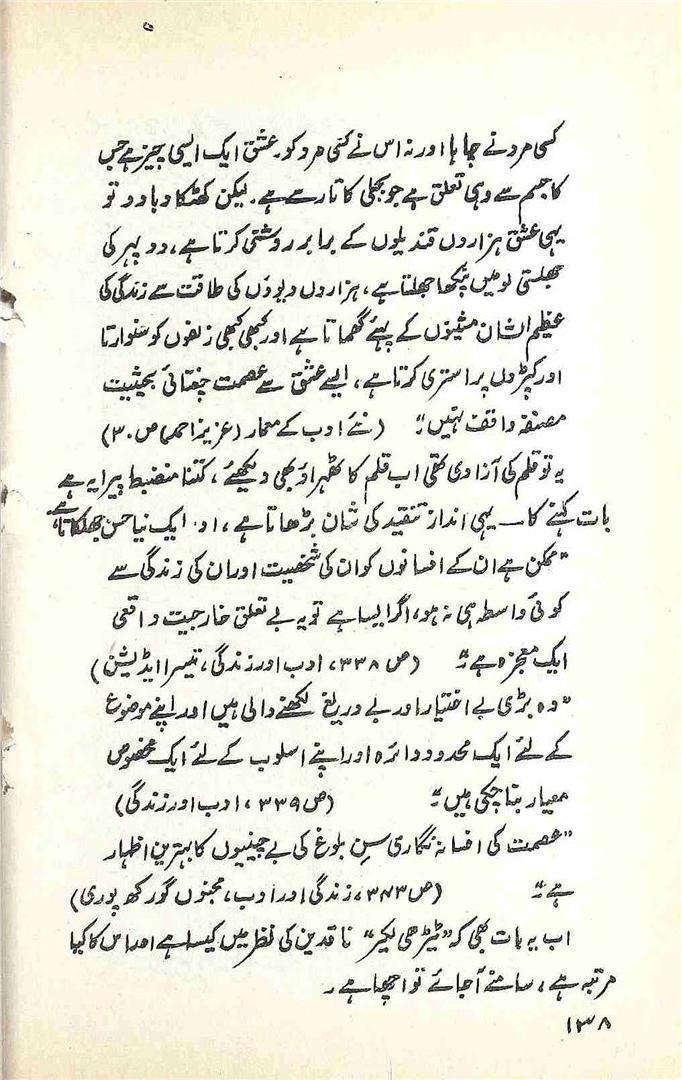 کسی مرد نے چاہا اور نہ اس نے کسی مرد کو۔ عشق ایک ایسی چیز ہے جس
کا جسم سے وہی تعلق ہے جو بجلی کا تار سے ہے۔ لیکن کھٹکا دبا دو تو
یہی عشق ہزاروں قندیلوں کے برابر روشنی کرتا ہے، دوپہر کی
جھلستی لو میں پنکھا جھلتا ہے، ہزاروں دیوؤں کی طاقت سے زندگی کی
عظیم الشان مشینوں کے پہئے گھماتا ہے اور کبھی کبھی زلفوں کو سنوارتا
اور کپڑوں پر استری کرتا ہے، ایسے عشق سے عصمت چغتائی بحیثیت
مصنفہ واقف نہیں"؛ (نئے ادب کے معمار (عزیز احمد) ص ۳۰)
یہ تو قلم کی آزادی تھی اب قلم کا ٹھہراؤ بھی دیکھئے، کتنا منضبط پیرایہ ہے
بات کہنے کا — یہی انداز تنقید کی شان بڑھاتا ہے، اور ایک نیا حسن جھلکاتا ہے
"ممکن ہے ان کے افسانوں کو ان کی شخصیت اور ان کی زندگی سے
کوئی واسطہ ہی نہ ہو، اگر ایسا ہے تو یہ بے تعلق خارجیت واقعی
ایک معجزہ ہے"؛ (ص ۳۳۸، ادب اور زندگی، تیسرا ایڈیشن)
"وہ بڑی بے اختیار اور بے دریغ لکھنے والی ہیں اور اپنے موضوع
کے لئے ایک محدود دائرہ اور اپنے اسلوب کے لئے ایک مخصوص
معیار بنا چکی ہیں"؛ (ص ۳۳۹، ادب اور زندگی)
"عصمت کی افسانہ نگاری سنِ بلوغ کی بے چینیوں کا بہترین اظہار
ہے"؛ (ص ۳۷۳، زندگی اور ادب، مجنوں گورکھ پوری)
اب یہ بات بھی کہ "ٹیڑھی لکیر" ناقدین کی نظر میں کیسا ہے اور اس کا کیا
مرتبہ ہے، سامنے آجائے تو اچھا ہے۔
۱۳۸